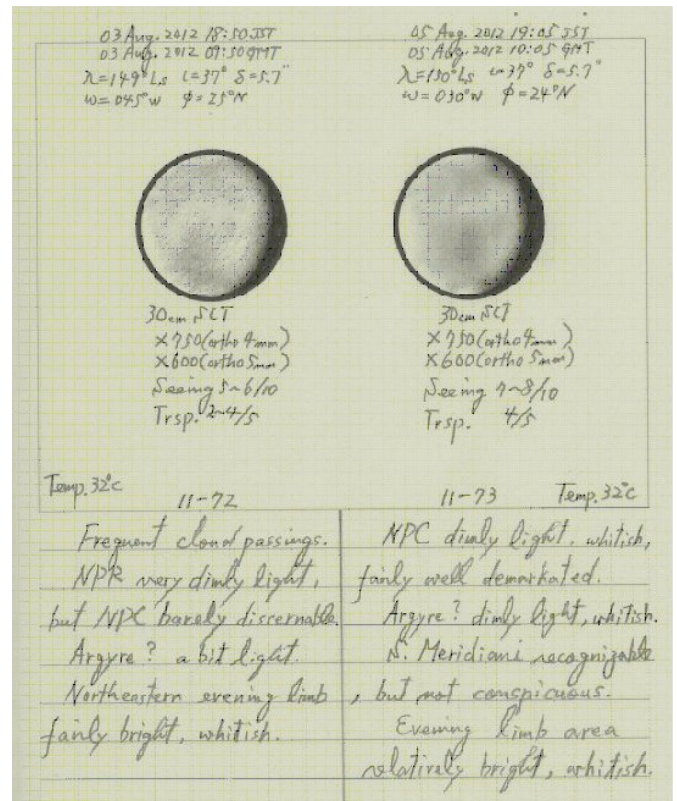 03 Aug. 2012 18:50 JST
03 Aug. 2012 09:50 GMT
λ=149°Ls ι=37° δ=5.7"
ω=045°W φ=25°N
30cm SCT
×750(ortho 4mm)
×600(ortho 5mm)
Seeing 5~6/10
Trsp. 2~4/5
Temp. 32°C
11-72
Frequent cloud passings.
NPR very dimly light,
but NPC barely discernable.
Argyre? a bit light.
Northeastern evening limb
fairly bright, whitish.
05 Aug. 2012 19:05 JST
05 Aug. 2012 10:05 GMT
λ=150°Ls ι=37° δ=5.7"
ω=030°W φ=24°N
30cm SCT
×750(ortho 4mm)
×600(ortho 5mm)
Seeing 7~8/10
Trsp. 4/5
11-73
Temp. 32°C
NPC dimly light, whitish,
fairly well demarkated.
Argyre? dimly light, whitish.
S. Meridiani recognizable
, but not conspicuous.
Evening limb area
relatively bright, whitish.